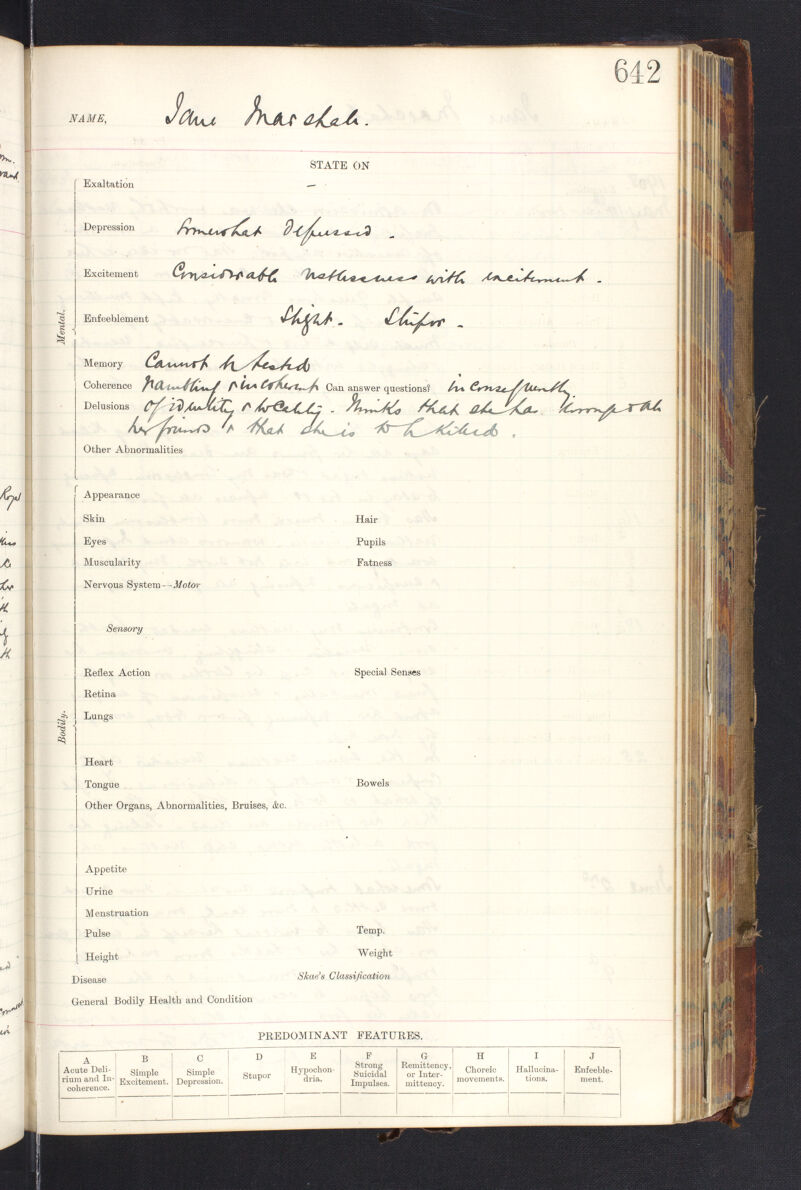 642
NAME, Jane Marshall.
STATE ON
Mental.
Exaltation –
Depression Somewhat depressed.
Excitement Considerable restlessness with excitement.
Enfeeblement Slight. Stupor.
Memory Cannot be tested
Coherence Rambling & incoherent Can answer questions? inconsequently
Delusions Of identity & locality. Thinks that she has wronged all
her friends & that she is to be killed.
Other Abnormalities
Bodily.
Appearance
Skin Hair
Eyes Pupils
Muscularity Fatness
Nervous System—Motor
Sensory
Reflex Action Special Senses
Retina
Lungs
Heart
Tongue Bowels
Other Organs, Abnormalities, Bruises, &c.
Appetite
Urine
Menstruation
Pulse Temp.
Height Weight
Disease Skae's Classification
General Bodily Health and Condition
PREDOMINANT FEATURES.
A B C D E F G H I J
Acute Deli-
rium and In-
coherence.
Simple
Excitement.
Simple
Depression.
Stupor
Hypochon-
dria.
Strong
Suicidal
Impulses.
Remittency,
or Inter-
mittency.
Choreic
movements.
Hallucina-
tions.
Enfeeble-
ment.